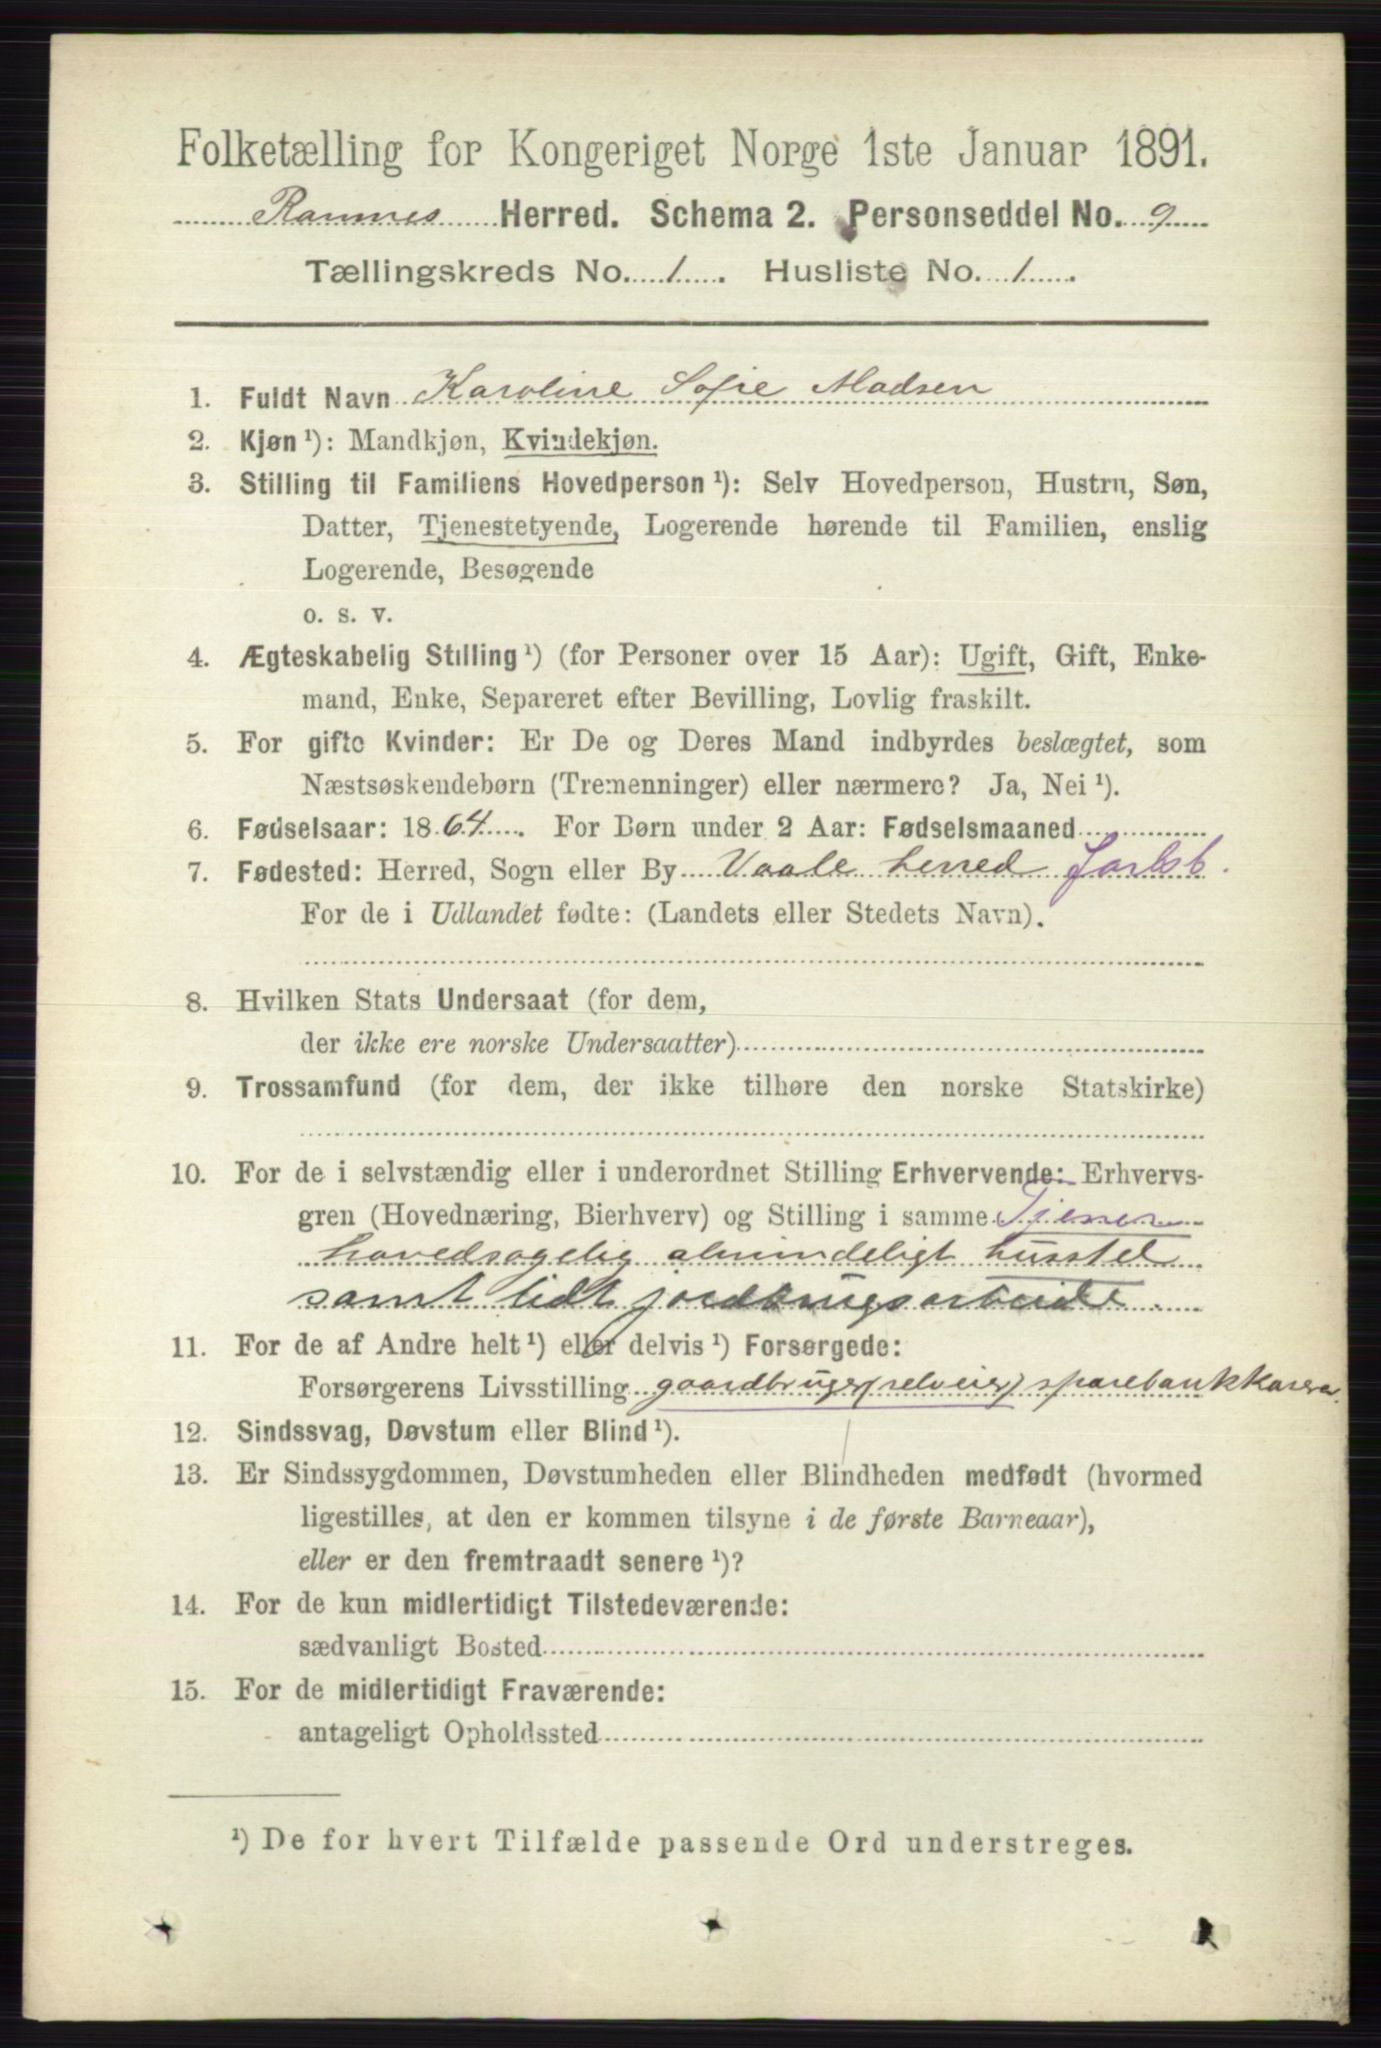 Folketælling for Kongeriget Norge 1ste Januar 1891.
Ramnes Herred. Schema 2. Personseddel No. 9
Tællingskreds No. 1. Husliste No. 1
1. Fuldt Navn Karoline Sofie Madsen
2. Kjøn ¹): Mandkjøn, Kvindekjøn.
3. Stilling til Familiens Hovedperson ¹): Selv Hovedperson, Hustru, Søn,
Datter, Tjenestetyende, Logerende hørende til Familien, enslig
Logerende, Besøgende
o. s. v.
4. Ægteskabelig Stilling ¹) (for Personer over 15 Aar): Ugift, Gift, Enke-
mand, Enke, Separeret efter Bevilling, Lovlig fraskilt.
5. For gifte Kvinder: Er De og Deres Mand indbyrdes beslægtet, som
Næstsøskendebørn (Tremenninger) eller nærmere? Ja, Nei ¹).
6. Fødselsaar: 1864. For Børn under 2 Aar: Fødselsmaaned
7. Fødested: Herred, Sogn eller By Vaale herred Jarlsb.
For de i Udlandet fødte: (Landets eller Stedets Navn).
8. Hvilken Stats Undersaat (for dem,
der ikke ere norske Undersaatter)
9. Trossamfund (for dem, der ikke tilhøre den norske Statskirke)
10. For de i selvstændig eller i underordnet Stilling Erhvervende: Erhvervs-
gren (Hovednæring, Bierhverv) og Stilling i samme Tjener
hovedsagelig almindeligt husstel
samt lidt jordbrugsarbeide.
11. For de af Andre helt ¹) eller delvis ¹) Forsørgede:
Forsørgerens Livsstilling gaardbruger (selveier) sparebankkaserer.
12. Sindssvag, Døvstum eller Blind ¹).
13. Er Sindssygdommen, Døvstumheden eller Blindheden medfødt (hvormed
ligestilles, at den er kommen tilsyne i de første Barneaar),
eller er den fremtraadt senere ¹)?
14. For de kun midlertidigt Tilstedeværende:
sædvanligt Bosted
15. For de midlertidigt Fraværende:
antageligt Opholdssted
¹) De for hvert Tilfælde passende Ord understreges.